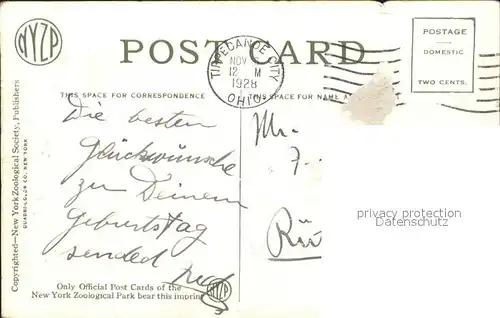 NYZP
POST CARD
TIPPECANOE CITY
NOV
12 M
1928
OHIO
POSTAGE
DOMESTIC
TWO CENTS.
THIS SPACE FOR CORRESPONDENCE
THIS SPACE FOR NAME A
Die besten
Glückwünsche
zu Deinem
Geburtstag
sended
Mr.
7..
Rü
privacy protection
Datenschutz
Copyrighted—New York Zoological Society, Publishers
QUADRI-GLOR CO. NEW YORK
Only Official Post Cards of the
New York Zoological Park bear this imprint
NYZP